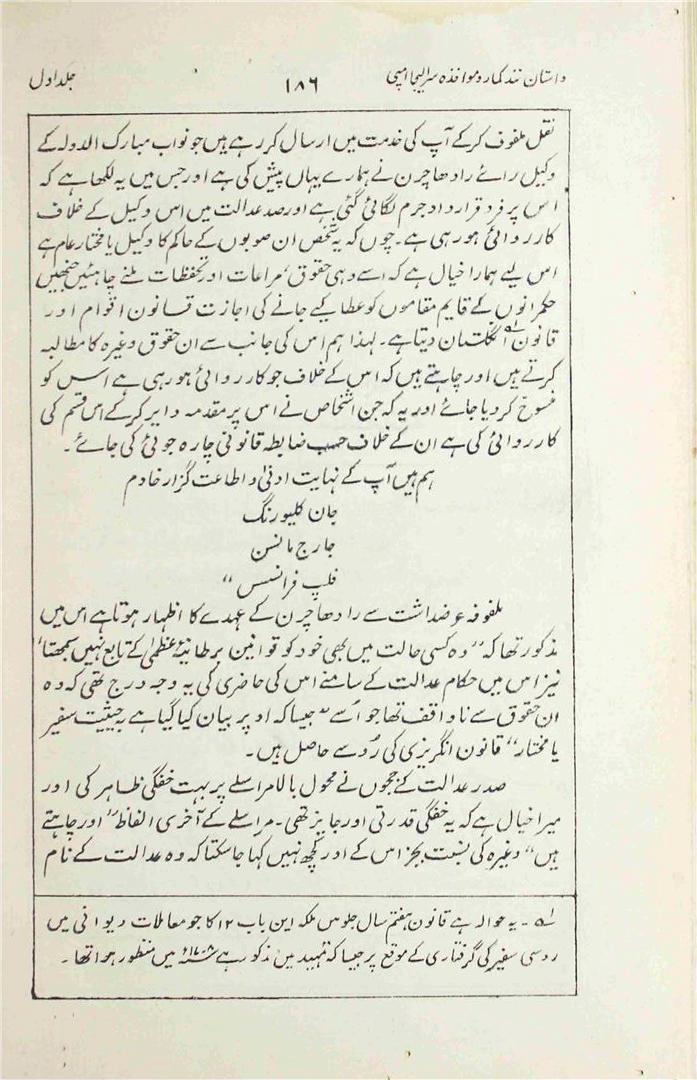 داستان نند کمار و مواخذہ سر ایلیجا امپی
۱۸۶
جلد اول
نقل ملفوف کرکے آپ کی خدمت میں ارسال کر رہے ہیں جو نواب مبارک الدولہ کے
وکیل رائے رادھا چرن نے ہمارے یہاں پیش کی ہے اور جس میں یہ لکھا ہے کہ
اس پر فرد قرارداد جرم لگائی گئی ہے اور صدر عدالت میں اس وکیل کے خلاف
کارروائی ہو رہی ہے۔ چوں کہ یہ شخص ان صوبوں کے حاکم کا وکیل یا مختار عام ہے
اس لیے ہمارا خیال ہے کہ اسے وہی حقوق، مراعات اور تحفظات ملنے چاہئیں جنھیں
حکمرانوں کے قایم مقاموں کو عطا کیے جانے کی اجازت قانون اقوام اور
قانون انگلستان دیتا ہے۔ لہذا ہم اس کی جانب سے ان حقوق وغیرہ کا مطالبہ
کرتے ہیں اور چاہتے ہیں کہ اس کے خلاف جو کارروائی ہو رہی ہے اس کو
منسوخ کر دیا جائے اور یہ کہ جن اشخاص نے اس پر مقدمہ دایر کرکے اس قسم کی
کارروائی کی ہے ان کے خلاف حسب ضابطہ قانونی چارہ جوئی کی جائے۔
ہم ہیں آپ کے نہایت ادنیٰ و اطاعت گزار خادم
جان کلیورنگ
جارج مانسن
فلپ فرانسس"
ملفوفہ عرضداشت سے رادھا چرن کے عہدے کا اظہار ہوتا ہے اس میں
مذکور تھا کہ "وہ کسی حالت میں بھی خود کو قوانین برطانیۂ عظمیٰ کے تابع نہیں سمجھتا"
نیز اس میں حکام عدالت کے سامنے اس کی حاضری کی یہ وجہ درج تھی کہ وہ
ان حقوق سے ناواقف تھا جو اُسے "جیسا کہ اوپر بیان کیا گیا ہے بہ حیثیت سفیر
یا مختار" قانون انگریزی کی رُو سے حاصل ہیں۔
صدر عدالت کے ججوں نے محول بالا مراسلے پر بہت خفگی ظاہر کی اور
میرا خیال ہے کہ یہ خفگی قدرتی اور جایز تھی۔ مراسلے کے آخری الفاظ "اور چاہتے
ہیں" وغیرہ کی نسبت بجز اس کے اور کچھ نہیں کہا جا سکتا کہ وہ عدالت کے نام
لہ۔ یہ حوالہ ہے قانون ہفتم سال جلوس ملکہ این باب ۱۲ کا جو معاملات دیوانی میں
روسی سفیر کی گرفتاری کے موقع پر جیسا کہ تمہید میں مذکور ہے ۱۷۰۸ء میں منظور ہوا تھا۔